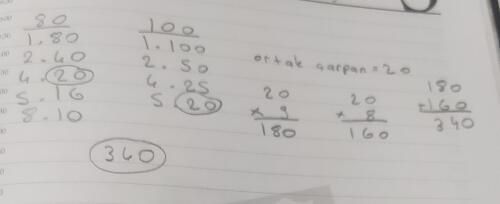 80
1.80
2.40
4.20
5.16
8.10
100
1.100
2.50
4.25
5.20
ortak çarpan = 20
20
× 9
180
20
× 8
160
180
+160
340
340